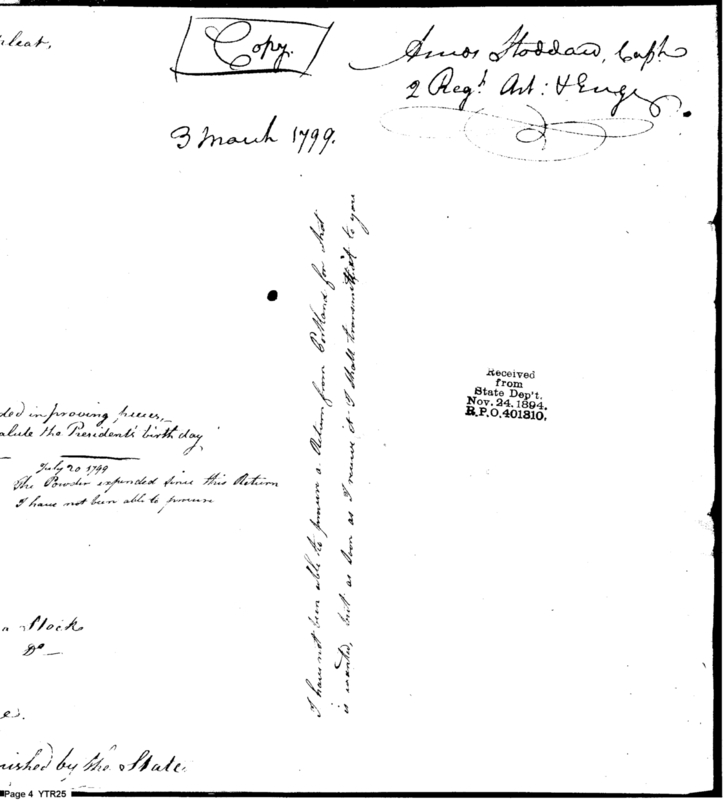 pleat,
Copy.
Amos Stoddard, Capt
2 Regt Art: & Engr
3 March 1799.
I have not been able to procure a Return from Portland for that
is wanted, but as soon as I receive it I shall transmit it to you
Received
from
State Dep't.
Nov. 24. 1894.
R.P.O. 401310.
ded in proving pieces,
alute the President's birth day
July 20 1799
The Powder expended since this Return
I have not been able to procure
n Stock
Do —
e.
nished by the State
Page 4 YTR25